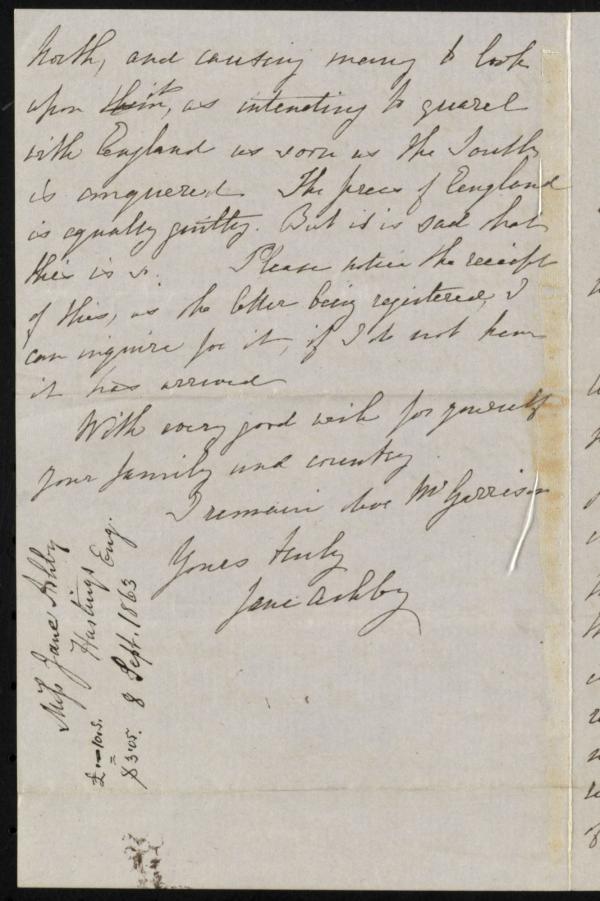 North, and causing many to look
upon it, as intending to quarel
with England as soon as the South
is conquered The press of England
is equally guilty. But it is sad that
this is so. Please notice the receipt
of this, as the letter being registered, I
can inquire for it, if I do not hear
it has arrived
With every good wish for yourself
your family and country.
I remain Mr Garrison
Yours truly
Jane Ashby
Miss Jane Ashby
Hastings Eng.
8 Sept. 1863